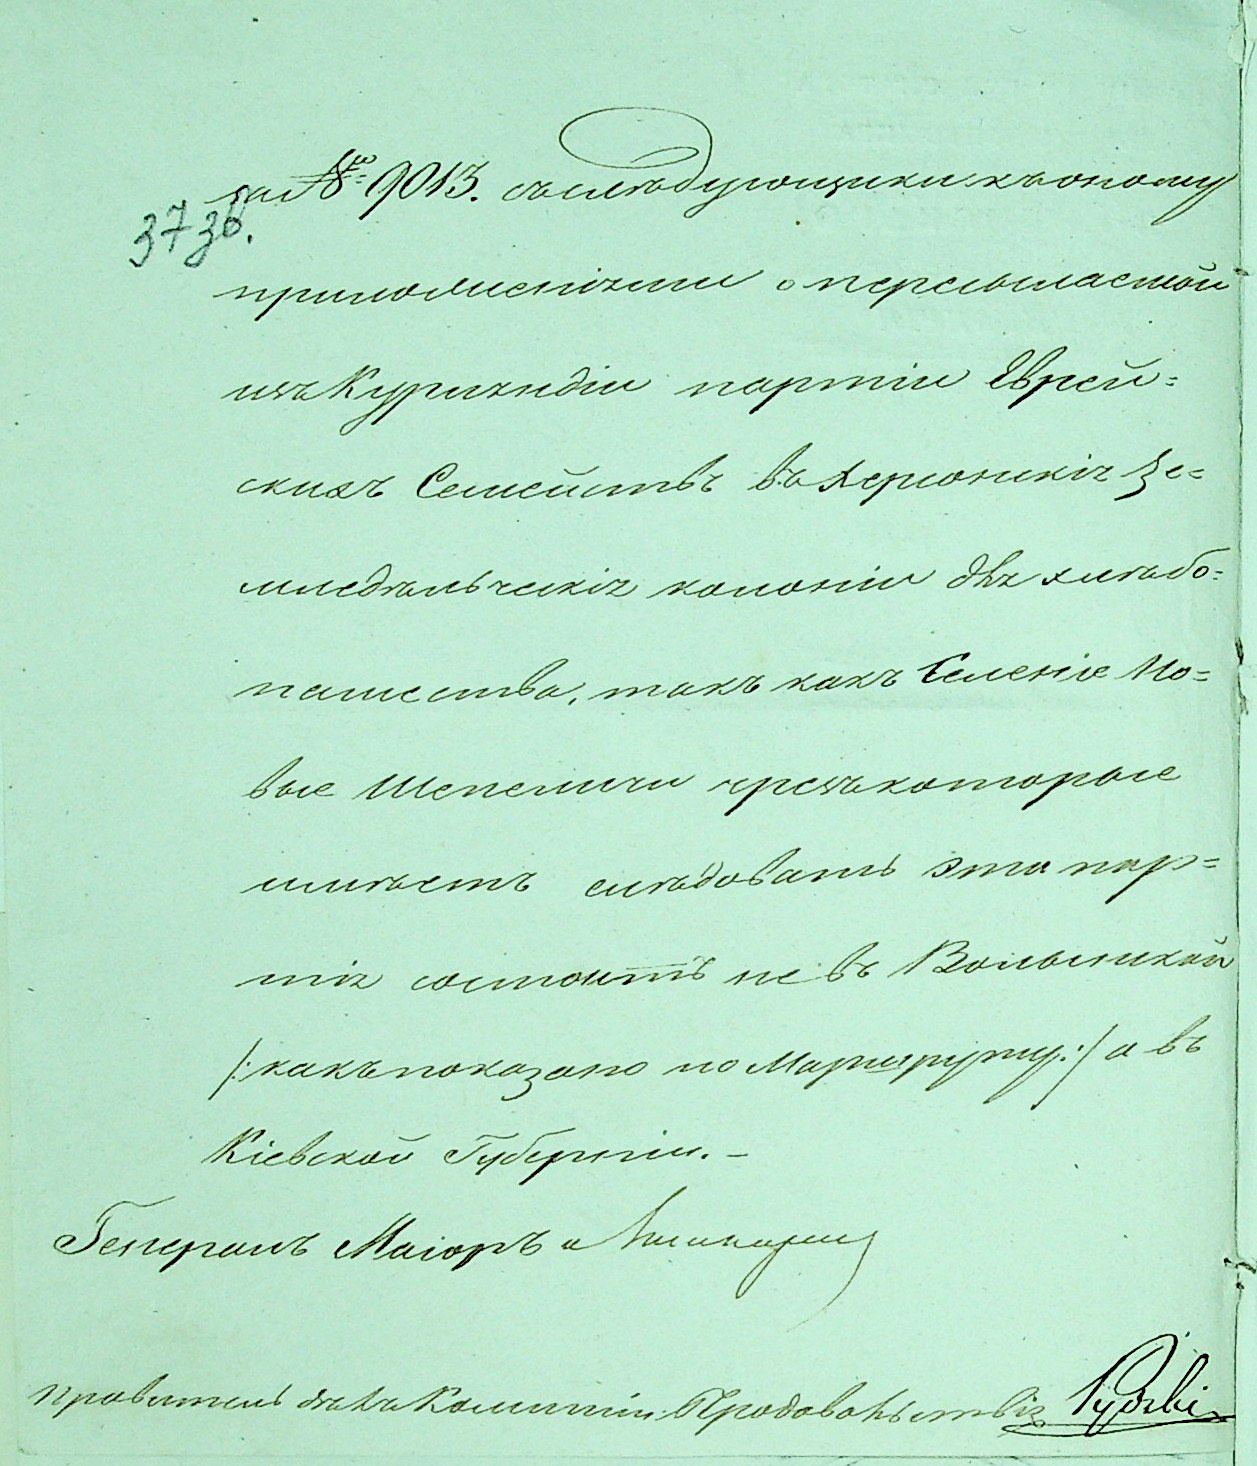 за № 9013. съ слѣдующими къ оному
3736.
приложеніями о пересылаемой
изъ Курляндіи партіи Еврей=
скихъ Семействъ въ Херсонскія Зе=
мледѣльческія колоніи для хлѣбо=
пашества, такъ какъ Селеніе Но=
вые Шепеличи чрезъ которые
имѣетъ слѣдовать эта пар=
тія состоитъ не въ Волынской
/: какъ показано по Маршруту :/ а въ
Кіевской Губерніи. –
Генералъ Маіоръ
Правитель дѣлъ Коммиссіи Продовольствія